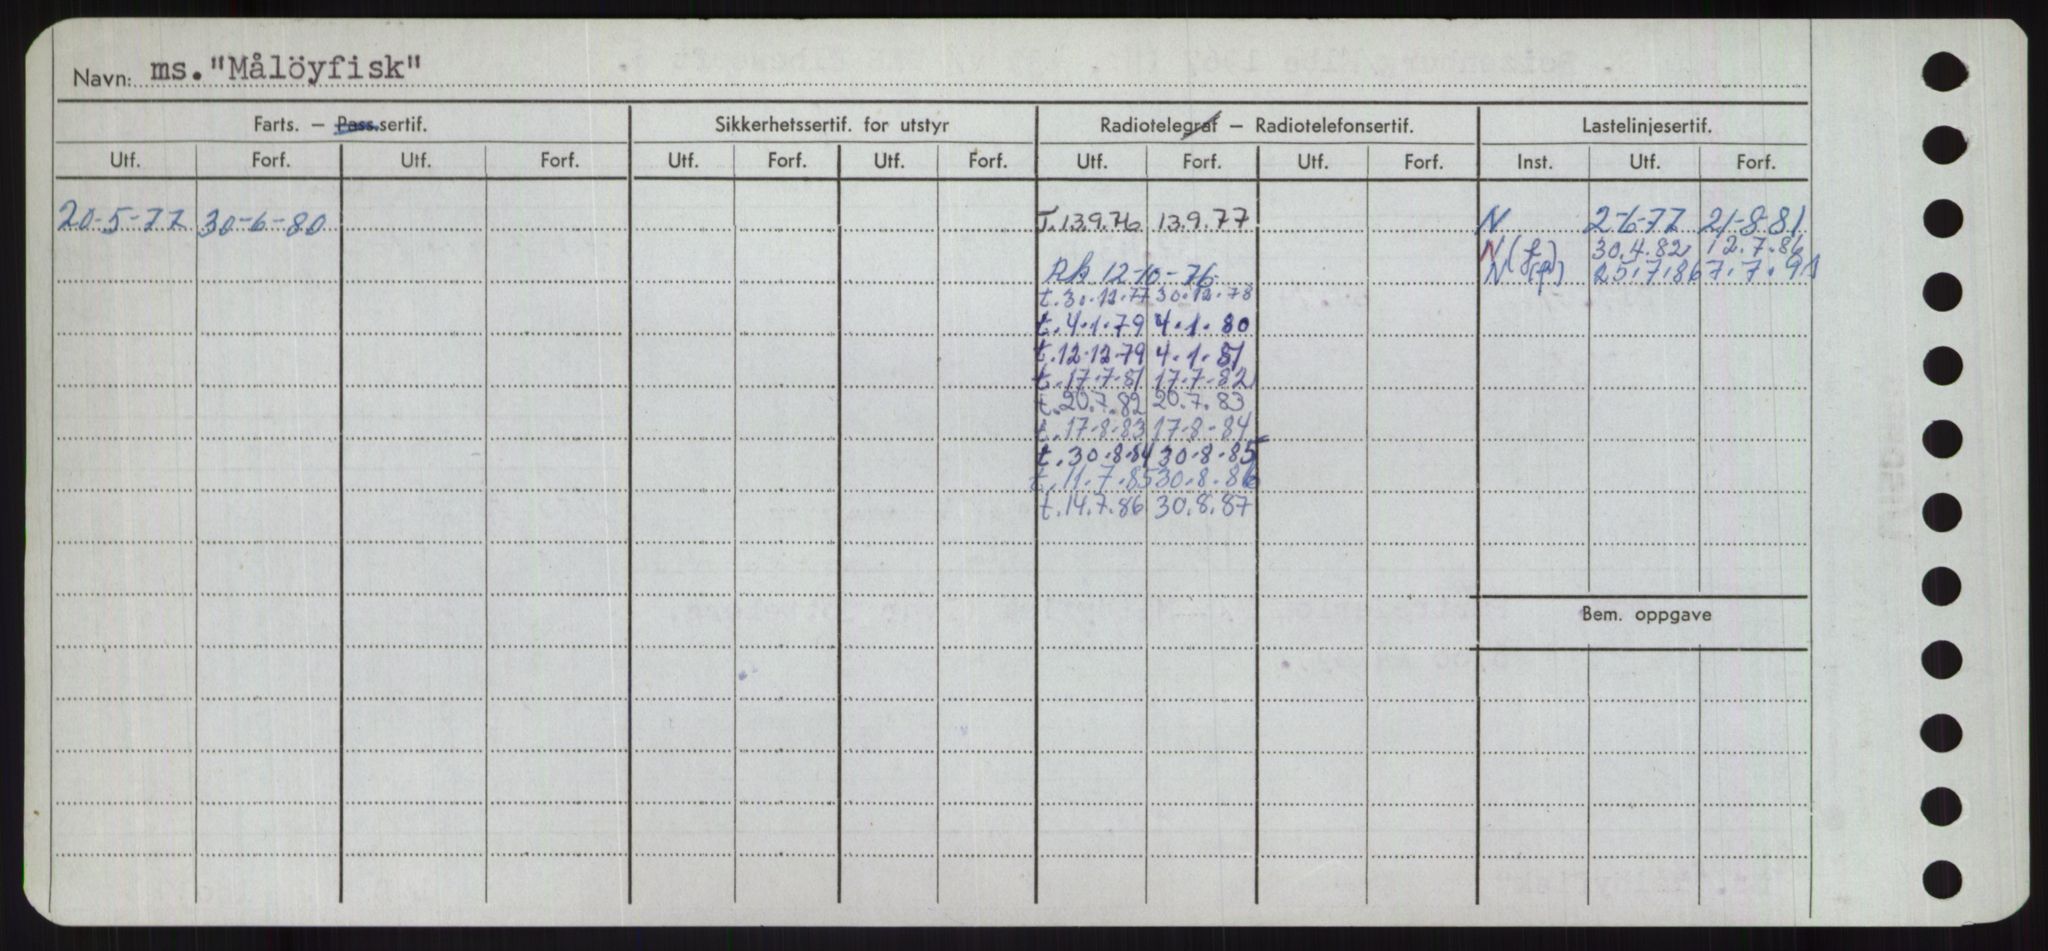 Navn: ms. "Målöyfisk"
Farts. — Pass.sertif. Sikkerhetssertif. for utstyr Radiotelegraf — Radiotelefonsertif. Lastelinjesertif.
Utf. Forf. Utf. Forf. Utf. Forf. Utf. Forf. Utf. Forf. Utf. Forf. Inst. Utf. Forf.
20-5-77 30-6-80 T.13.9.76 13.9.77 N 2-6-77 21-8-81
N (f) 30.4.82 12.7.86
Rk 12-10-76 N (f) 25.7.86 7.7.91
t.30.12.77 30.12.78
t.4.1.79 4.1.80
t.12.12.79 4.1.81
t.17.7.81 17.7.82
t.20.7.82 20.7.83
t.17.8.83 17.8.84
t.30.8.84 30.8.85
t.11.7.85 30.8.86
t.14.7.86 30.8.87
Bem. oppgave